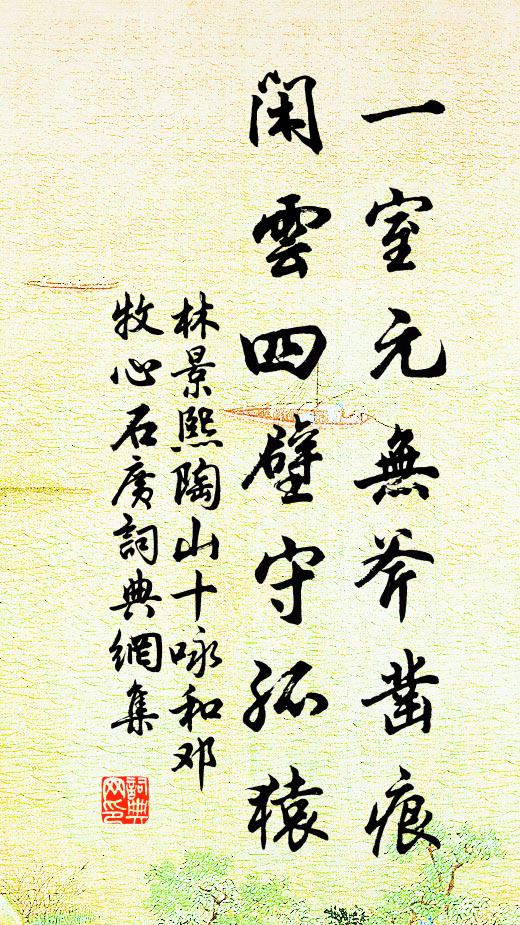 一室元無斧鑿痕
閑雲四壁守孤猿
林景熙陶山十咏和邓
牧心石廣詞典網集
詞典
网印